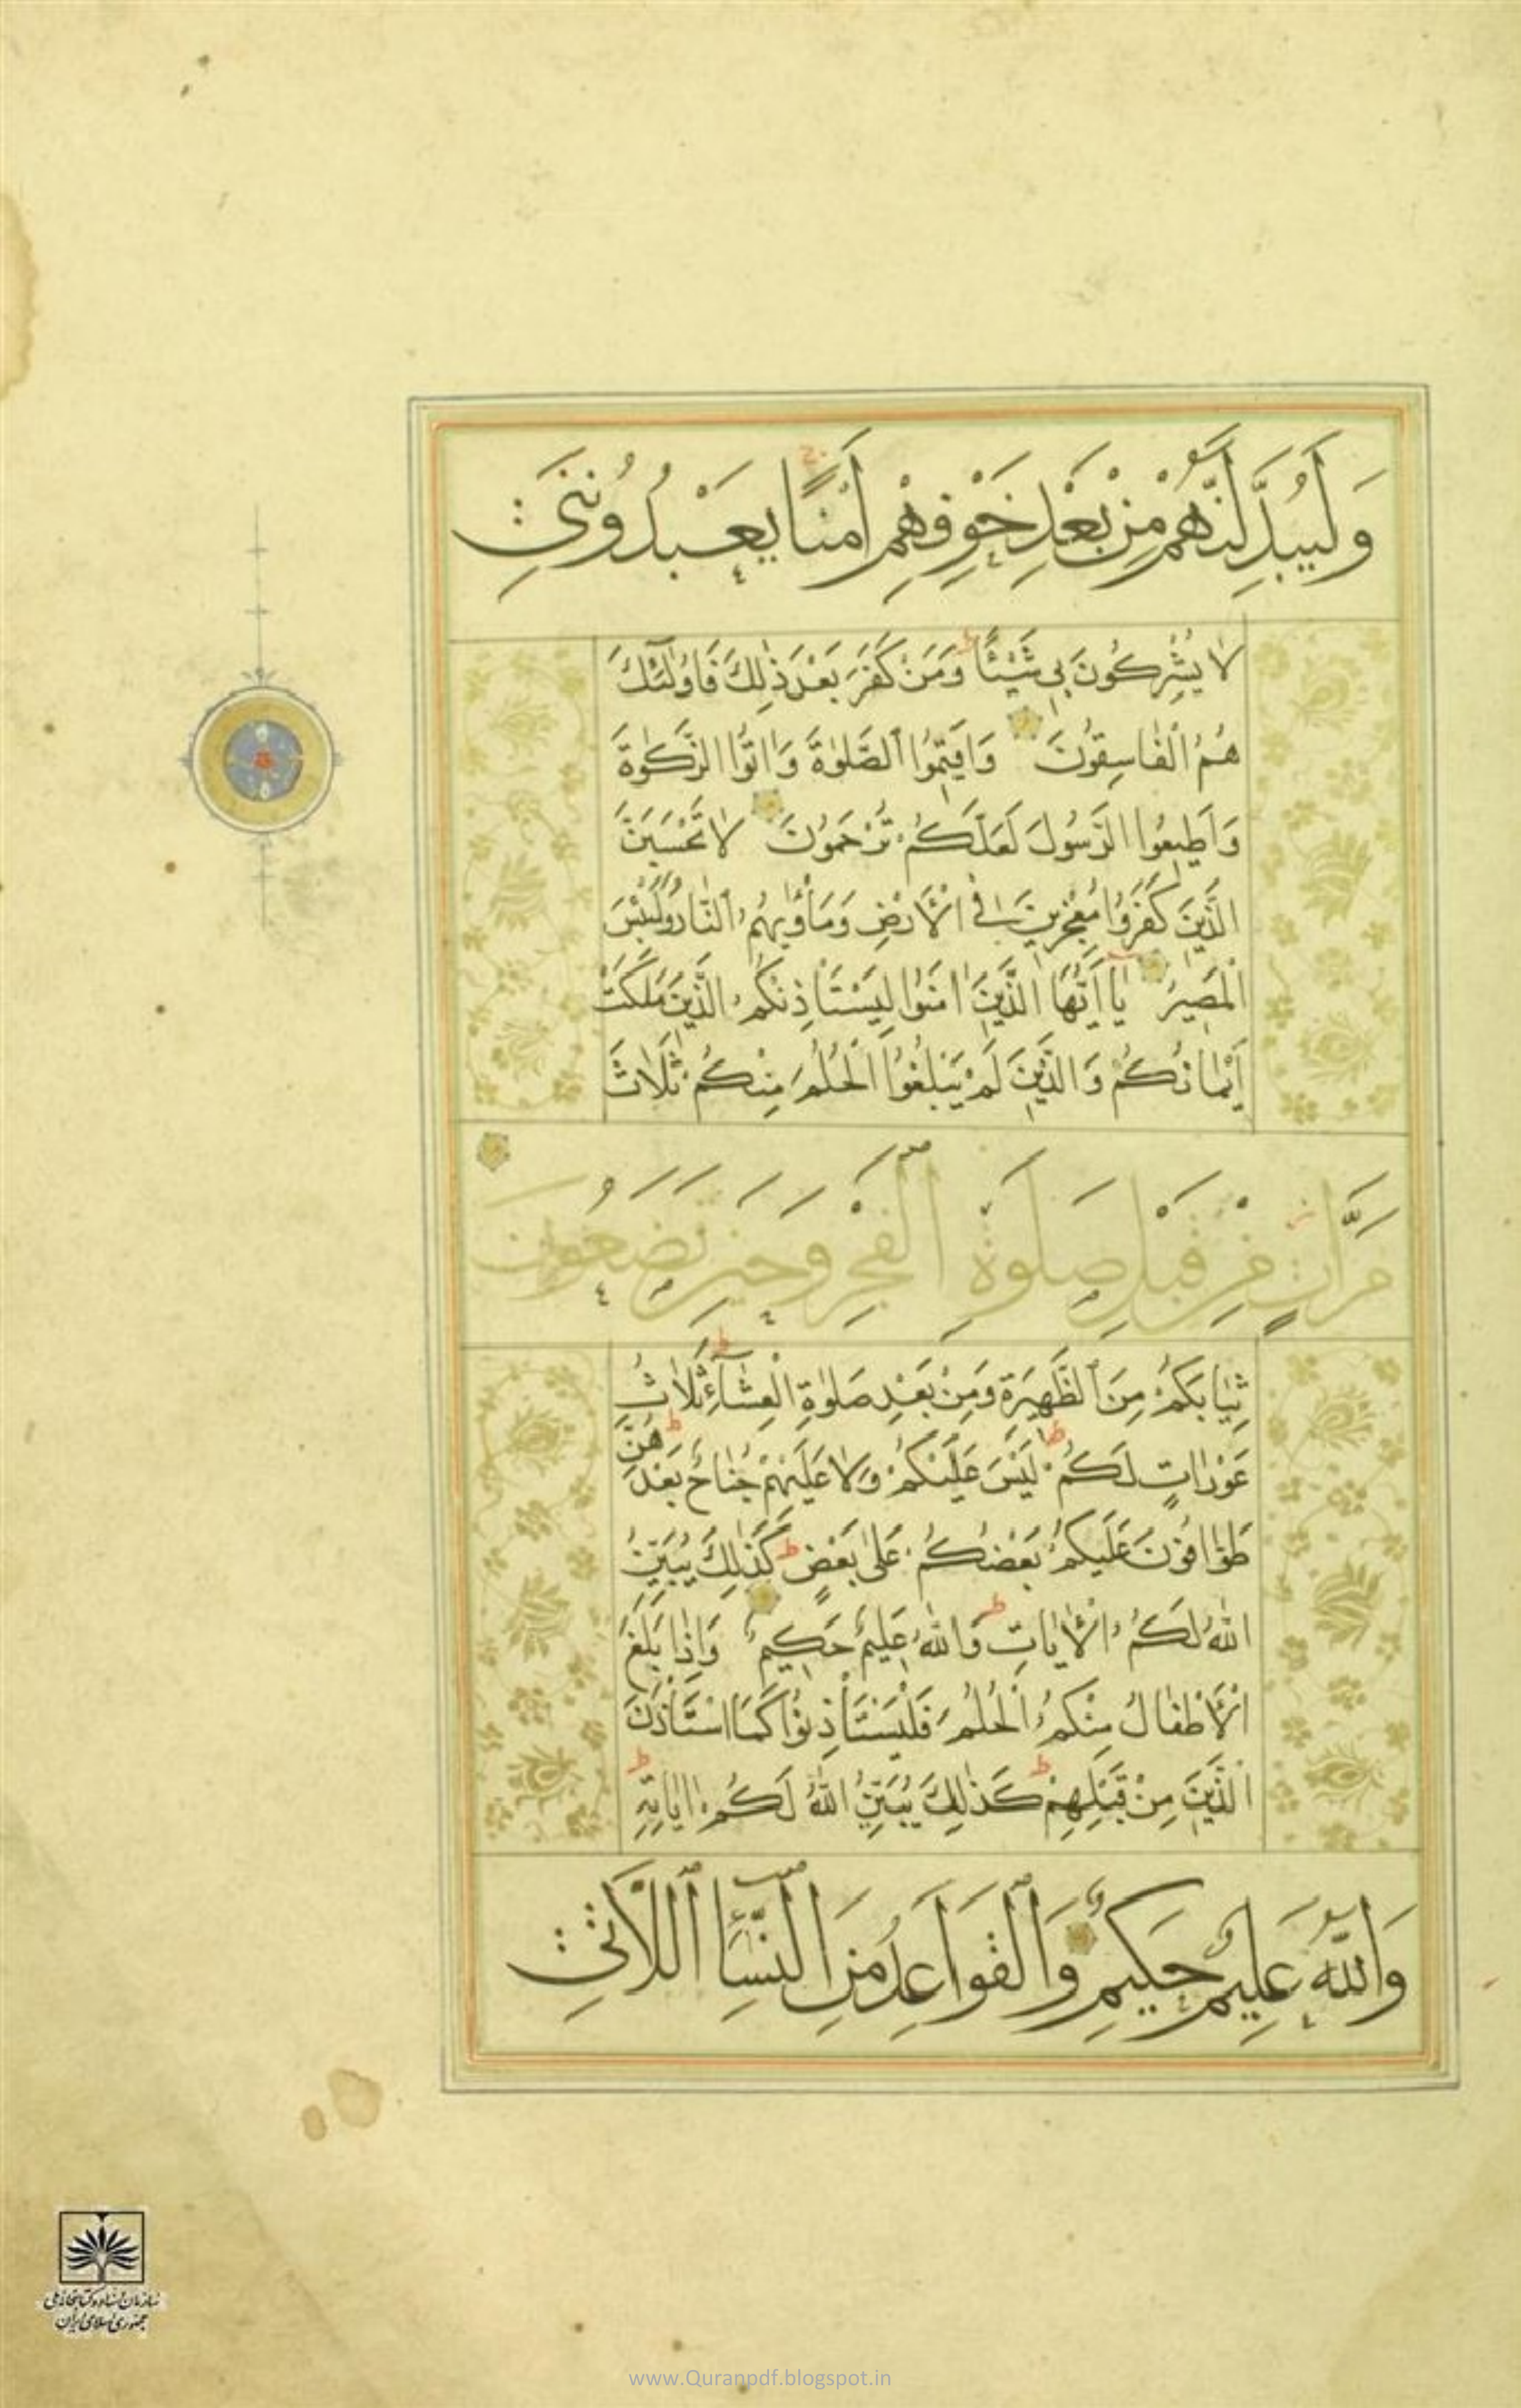 وَلَيُبَدِّلَنَّهُمْ مِنْ بَعْدِ خَوْفِهِمْ أَمْنًا يَعْبُدُونَنِي
لَا يُشْرِكُونَ بِي شَيْئًا وَمَنْ كَفَرَ بَعْدَ ذٰلِكَ فَاُولٰئِكَ
هُمُ الْفَاسِقُونَ وَاَقِيمُوا الصَّلٰوةَ وَاٰتُوا الزَّكٰوةَ
وَاَطِيعُوا الرَّسُولَ لَعَلَّكُمْ تُرْحَمُونَ لَا تَحْسَبَنَّ
الَّذِينَ كَفَرُوا مُعْجِزِينَ فِي الْاَرْضِ وَمَأْوٰيهُمُ النَّارُ وَلَبِئْسَ
الْمَصِيرُ يَا اَيُّهَا الَّذِينَ اٰمَنُوا لِيَسْتَأْذِنْكُمُ الَّذِينَ مَلَكَتْ
اَيْمَانُكُمْ وَالَّذِينَ لَمْ يَبْلُغُوا الْحُلُمَ مِنْكُمْ ثَلَاثَ
مَرَّاتٍ مِنْ قَبْلِ صَلٰوةِ الْفَجْرِ وَحِينَ تَضَعُونَ
ثِيَابَكُمْ مِنَ الظَّهِيرَةِ وَمِنْ بَعْدِ صَلٰوةِ الْعِشَآءِ ثَلَاثُ
عَوْرَاتٍ لَكُمْ لَيْسَ عَلَيْكُمْ وَلَا عَلَيْهِمْ جُنَاحٌ بَعْدَهُنَّ
طَوَّافُونَ عَلَيْكُمْ بَعْضُكُمْ عَلٰى بَعْضٍ كَذٰلِكَ يُبَيِّنُ
اللّٰهُ لَكُمُ الْاٰيَاتِ وَاللّٰهُ عَلِيمٌ حَكِيمٌ وَاِذَا بَلَغَ
الْاَطْفَالُ مِنْكُمُ الْحُلُمَ فَلْيَسْتَأْذِنُوا كَمَا اسْتَأْذَنَ
الَّذِينَ مِنْ قَبْلِهِمْ كَذٰلِكَ يُبَيِّنُ اللّٰهُ لَكُمْ اٰيَاتِهِ
وَاللّٰهُ عَلِيمٌ حَكِيمٌ وَالْقَوَاعِدُ مِنَ النِّسَآءِ اللَّاتِي
سازمان اسناد و کتابخانه ملی
جمهوری اسلامی ایران
www.Quranpdf.blogspot.in